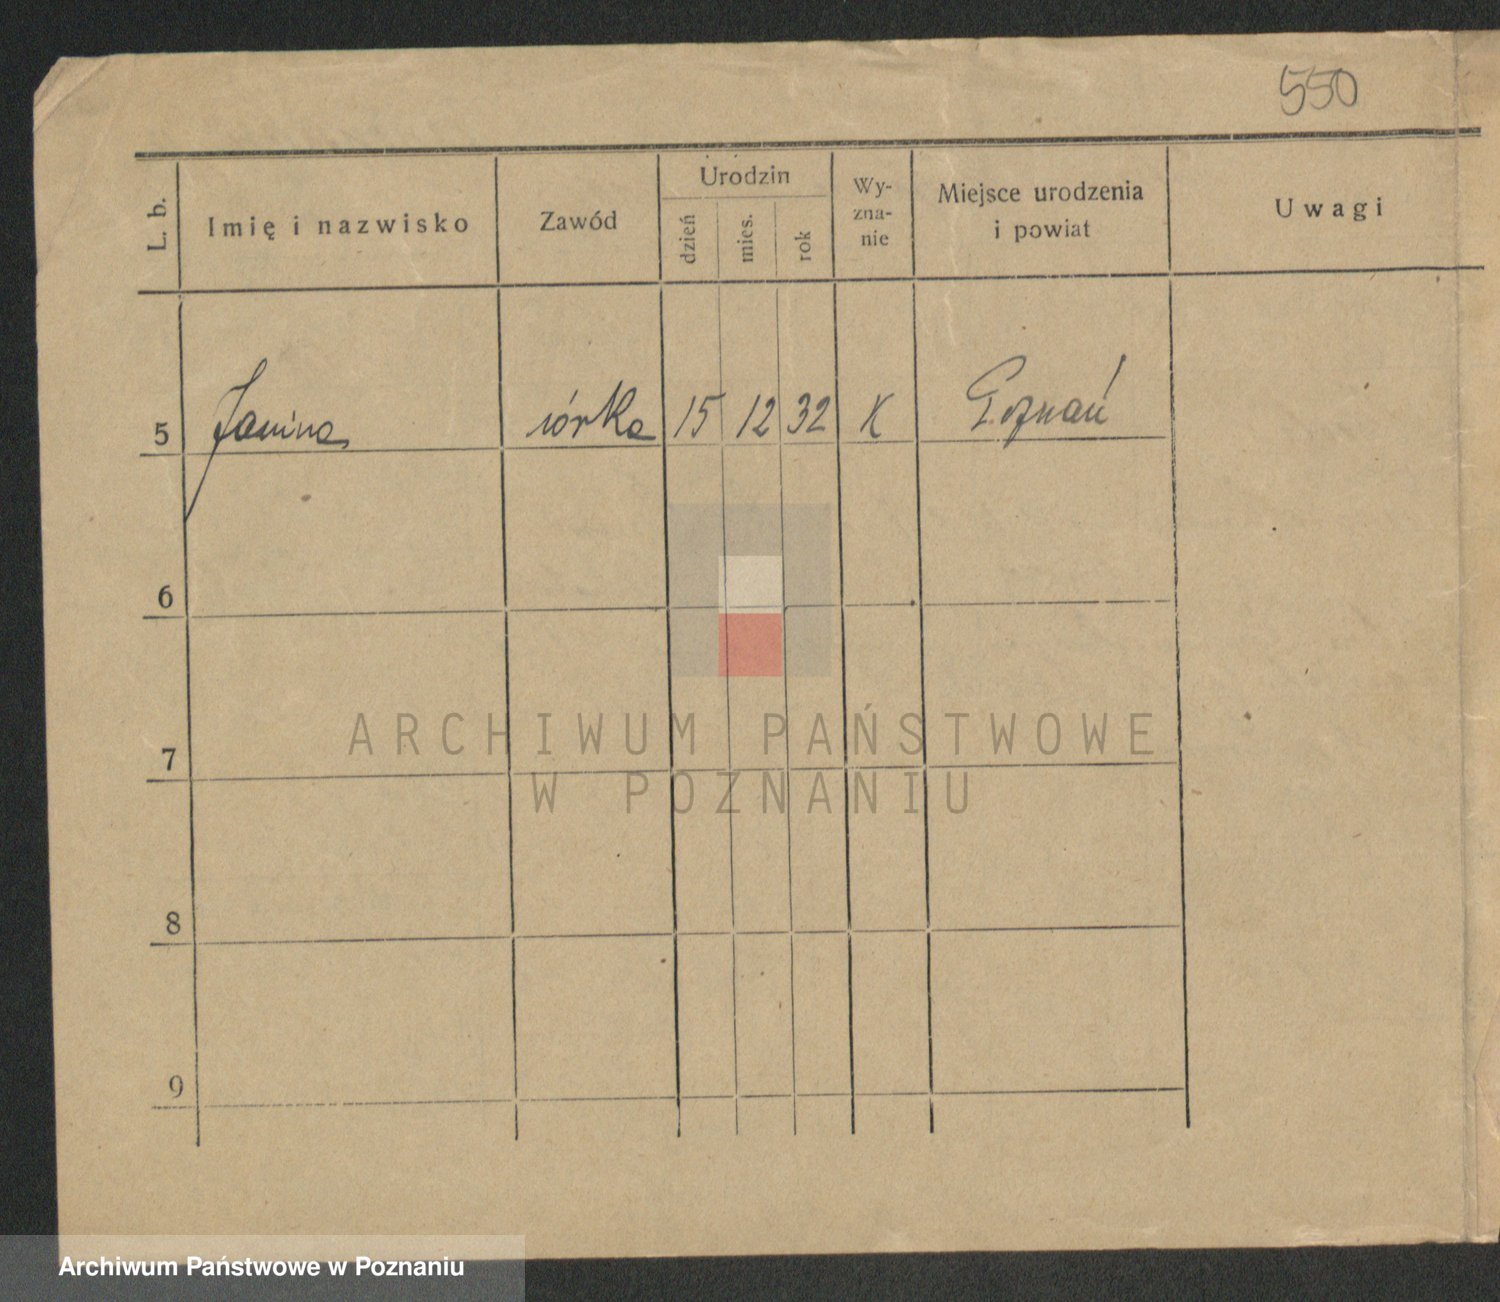 550
L. b.
Imię i nazwisko
Zawód
Urodzin
dzień
mies.
rok
Wy-
zna-
nie
Miejsce urodzenia
i powiat
Uwagi
5 Janina córka 15 12 32 K Poznań
6
7
8
9
ARCHIWUM PAŃSTWOWE
W POZNANIU
Archiwum Państwowe w Poznaniu